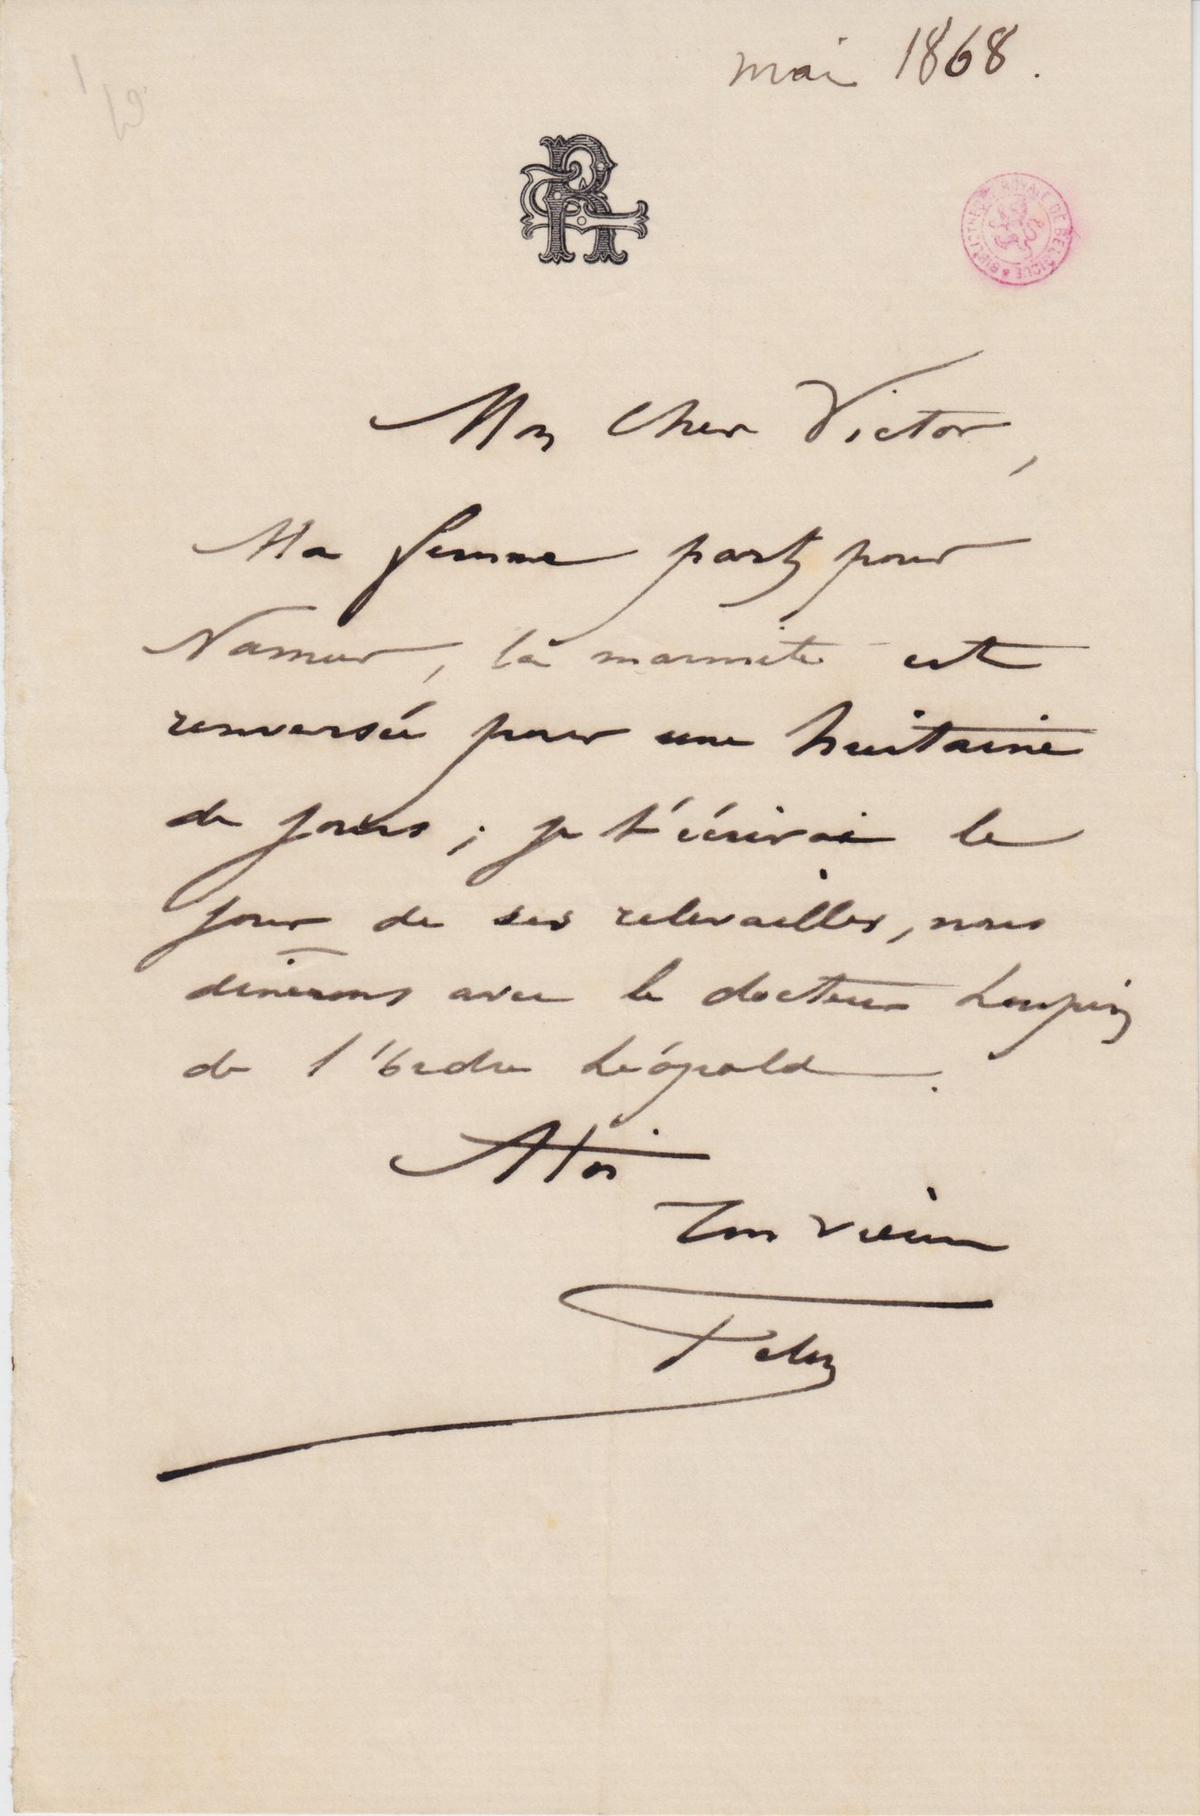 mai 1868.
R
BIBLIOTHEQUE ROYALE DE BELGIQUE
Mon Cher Victor,
Ma femme part pour
Namur, la marmite est
renversée pour une huitaine
de jours ; je t'écrirai le
jour de ses relevailles, nous
dinerons avec le docteur
de l'Ordre Léopold.
A toi
Ton vieux
Fely